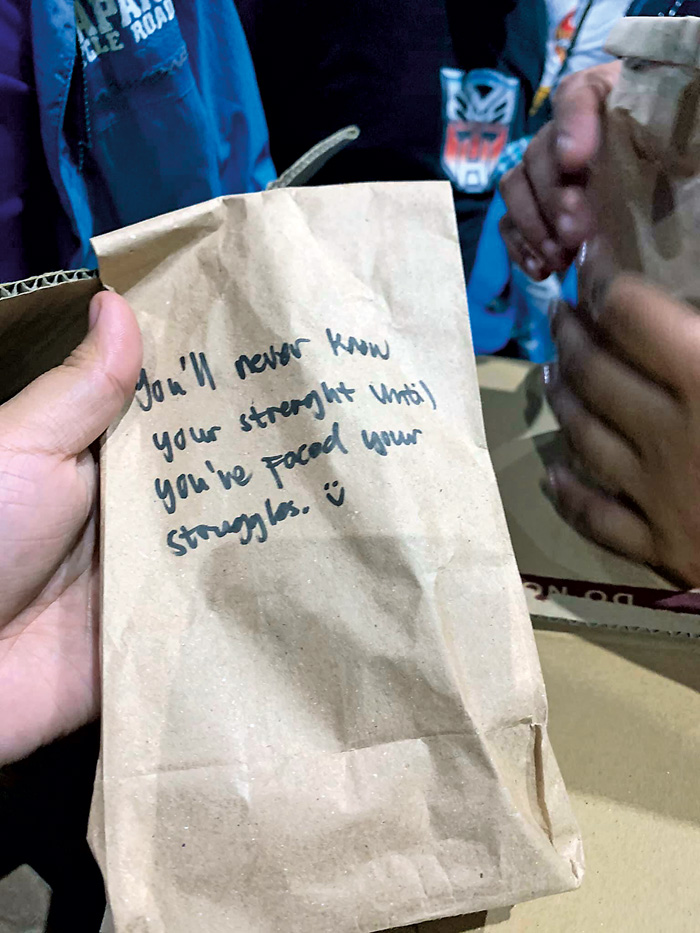 ROAD
You'll never know
your strenght until
you've faced your
struggles. ü
DO NO